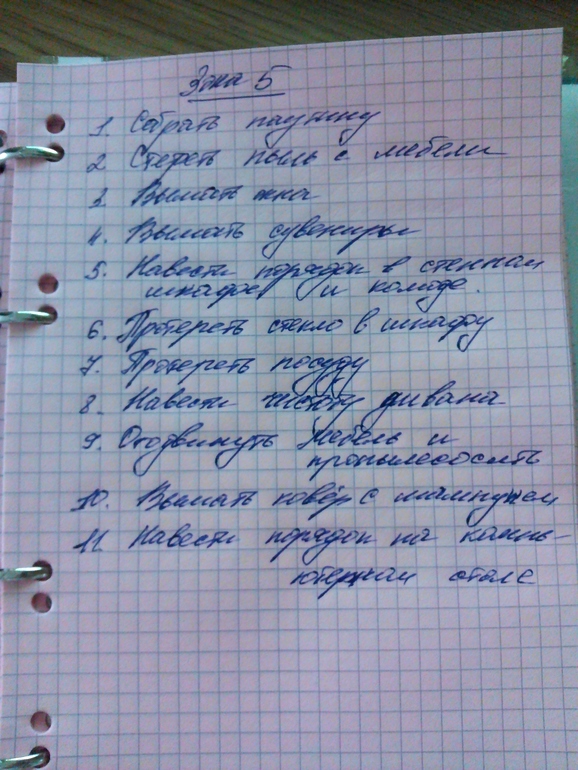 Зона 5
1. Собрать паутину
2. Стереть пыль с мебели
3. Вымыть окна
4. Вымыть сувениры
5. Навести порядок в стенном
шкафе и комоде.
6. Протереть стекло в шкафу
7. Протереть посуду
8. Навести чистоту дивана
9. Отодвинуть мебель и
пропылесосить
10. Вымыть ковёр с шампунем
11. Навести порядок на компь-
ютерном столе